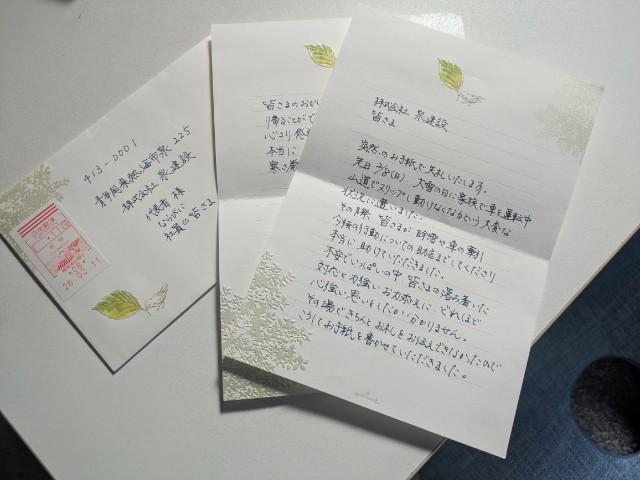 413-0001
静岡県熱海市泉225
株式会社 泉建設
代表者 様
ならびに
社員の皆さま
26.02.11
皆さまのおか
り帰ることがで
心より感
本当に
寒さ厳
株式会社 泉建設
皆さま
突然のお手紙で失礼いたします。
先日2/8(日) 大雪の日に家族で車を運転中
山道でスリップし動けなくなるという大変な
状況に遭いました。
その際、皆さまが除雪や車の牽引
今後の行動についての助言までしてくださり
本当に助けていただきました。
不安でいっぱいの中 皆さまの落ち着いた
対応と力強いお力添えに どれほど
心強い思いをしたか分かりません。
その場できちんとお礼をお伝えできなかったので
こうしてお手紙を書かせていただきました。